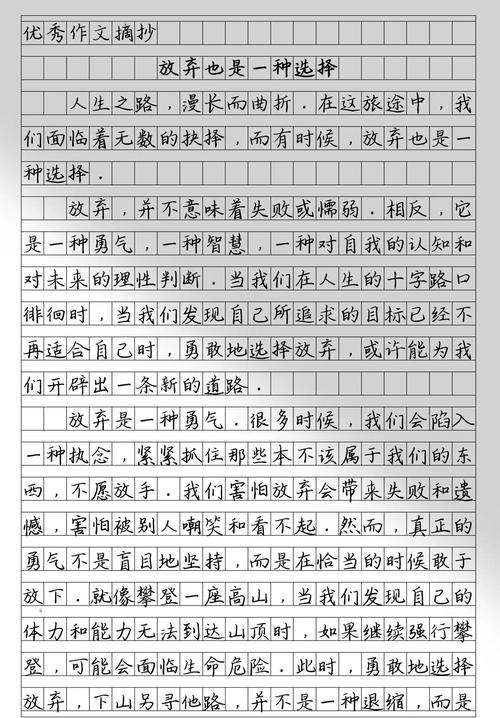 优秀作文摘抄
放弃也是一种选择
人生之路，漫长而曲折．在这旅途中，我
们面临着无数的抉择，而有时候，放弃也是一
种选择．
放弃，并不意味着失败或懦弱．相反，它
是一种勇气，一种智慧，一种对自我的认知和
对未来的理性判断．当我们在人生的十字路口
徘徊时，当我们发现自己所追求的目标已经不
再适合自己时，勇敢地选择放弃，或许能为我
们开辟出一条新的道路．
放弃是一种勇气．很多时候，我们会陷入
一种执念，紧紧抓住那些本不该属于我们的东
西，不愿放手．我们害怕放弃会带来失败和遗
憾，害怕被别人嘲笑和看不起．然而，真正的
勇气不是盲目地坚持，而是在恰当的时候敢于
放下．就像攀登一座高山，当我们发现自己的
体力和能力无法到达山顶时，如果继续强行攀
登，可能会面临生命危险．此时，勇敢地选择
放弃，下山另寻他路，并不是一种退缩，而是